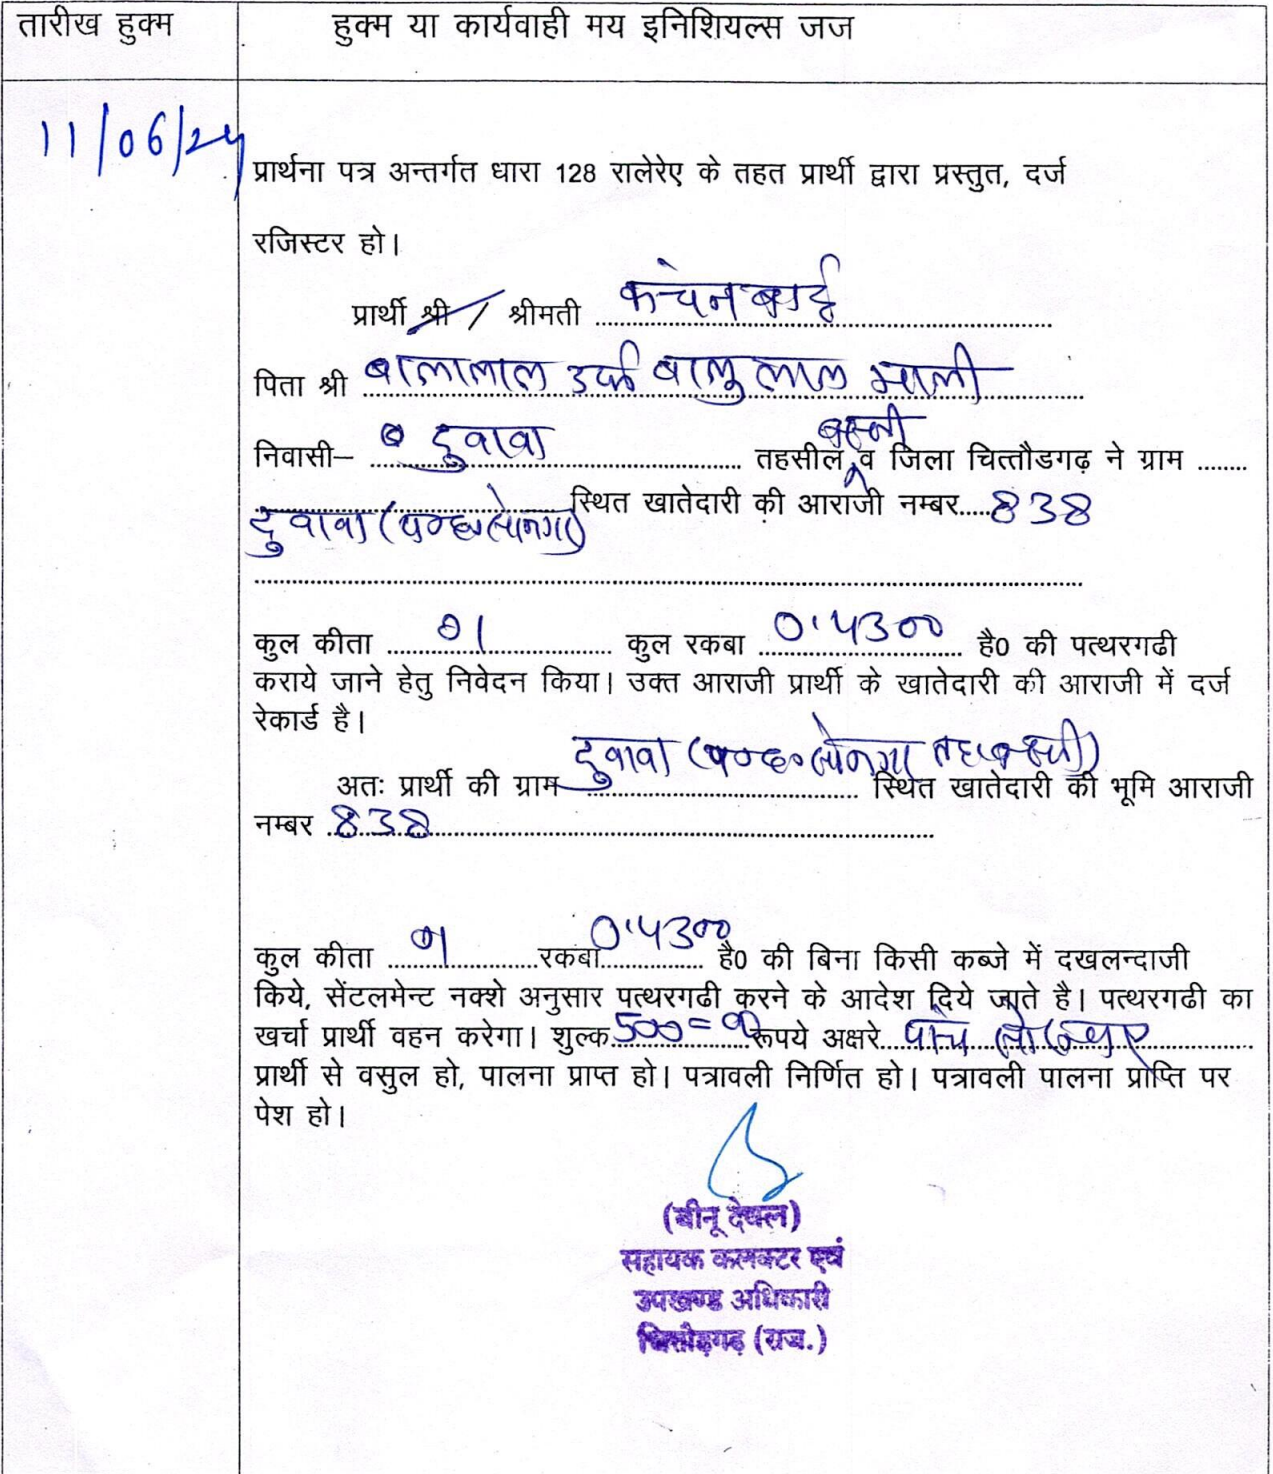 तारीख हुक्म
हुक्म या कार्यवाही मय इनिशियल्स जज
11/06/24
प्रार्थना पत्र अन्तर्गत धारा 128 रालेरेए के तहत प्रार्थी द्वारा प्रस्तुत, दर्ज
रजिस्टर हो।
प्रार्थी श्री / श्रीमती कंचन बाई
पिता श्री बालालाल उर्फ बालु लाल माली
बस्सी
निवासी– दुवावा तहसील व जिला चित्तौडगढ़ ने ग्राम ........
दुवावा स्थित खातेदारी की आराजी नम्बर.....838
कुल कीता 01 कुल रकबा 0.4300 है0 की पत्थरगढी
कराये जाने हेतु निवेदन किया। उक्त आराजी प्रार्थी के खातेदारी की आराजी में दर्ज
रेकार्ड है।
अतः प्रार्थी की ग्राम दुवावा स्थित खातेदारी की भूमि आराजी
नम्बर 838
कुल कीता 01 रकबा 0.4300 है0 की बिना किसी कब्जे में दखलन्दाजी
किये, सेंटलमेन्ट नक्शे अनुसार पत्थरगढी करने के आदेश दिये जाते है। पत्थरगढी का
खर्चा प्रार्थी वहन करेगा। शुल्क 500= रूपये अक्षरे पांच सो रूपए
प्रार्थी से वसुल हो, पालना प्राप्त हो। पत्रावली निर्णित हो। पत्रावली पालना प्राप्ति पर
पेश हो।
(बीनू देवल)
सहायक कलक्टर एवं
उपखण्ड अधिकारी
चित्तौड़गढ़ (राज.)